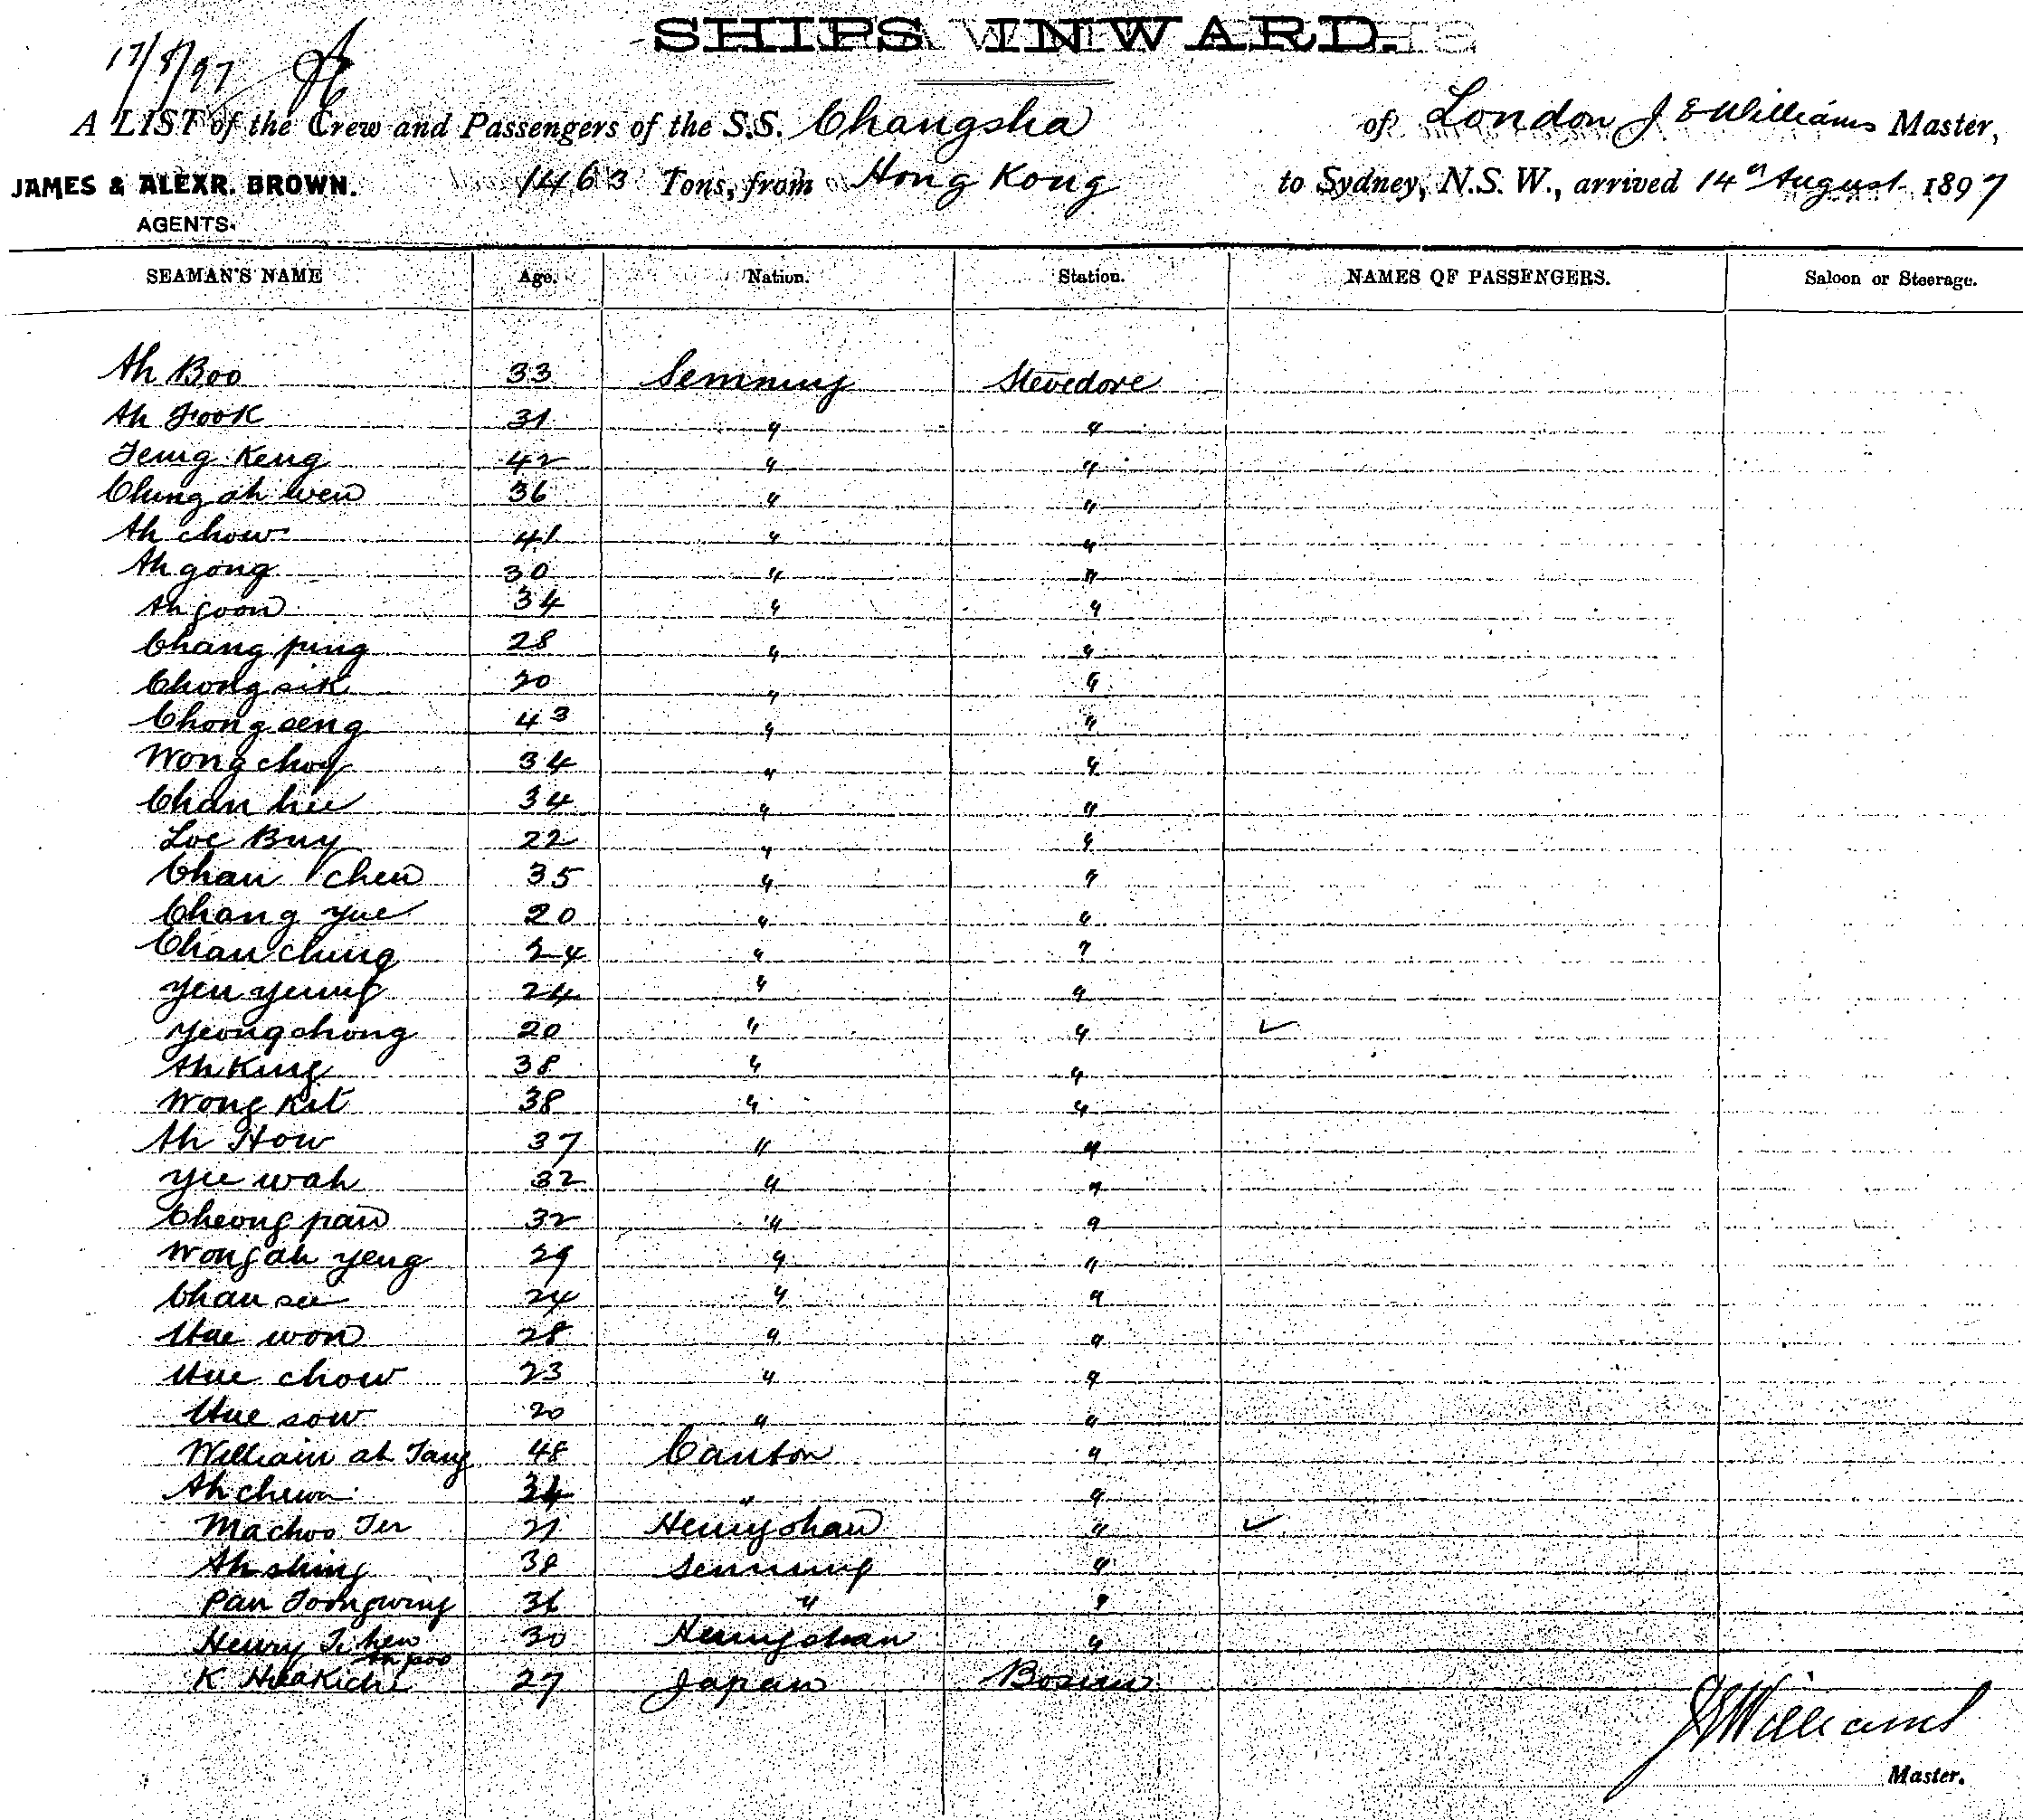 SHIPS INWARD.
17/8/97
A LIST of the Crew and Passengers of the S.S. Changsha of London J E Williams Master,
JAMES & ALEXR. BROWN. 1463 Tons, from Hong Kong to Sydney, N.S.W., arrived 14th August 1897
AGENTS.
SEAMAN'S NAME Age. Nation. Station. NAMES OF PASSENGERS. Saloon or Steerage.
Ah Boo 33 Senning Stevedore
Ah Fook 31 " "
Teung Keng 42 " "
Ching ah wen 36 " "
Ah chow 41 " "
Ah gong 30 " "
Ah goon 34 " "
Chang ping 28 " "
Chong sik 20 " "
Chong seng 43 " "
Wong choy 34 " "
Chan hee 34 " "
Loe Buy 22 " "
Chan chew 35 " "
Chang yue 20 " "
Chan ching 24 " "
Yen yeung 24 " "
Yeong chong 20 " " ✓
Ah King 38 " "
Wong Kit 38 " "
Ah How 37 " "
Yee wah 32 " "
Cheong paw 32 " "
Wong ah yeng 29 " "
Chan see 24 " "
Hae won 28 " "
Hue chow 23 " "
Hue sow 20 " "
William ah Tang 48 Canton "
Ah chewn 34 " "
Machoo Ter 21 Heungshan " ✓
Ah shing 38 Senning "
Pan Toong wing 36 " "
Henry 30 Heungshan "
K 27 Japan Bosun
J E Williams
Master.